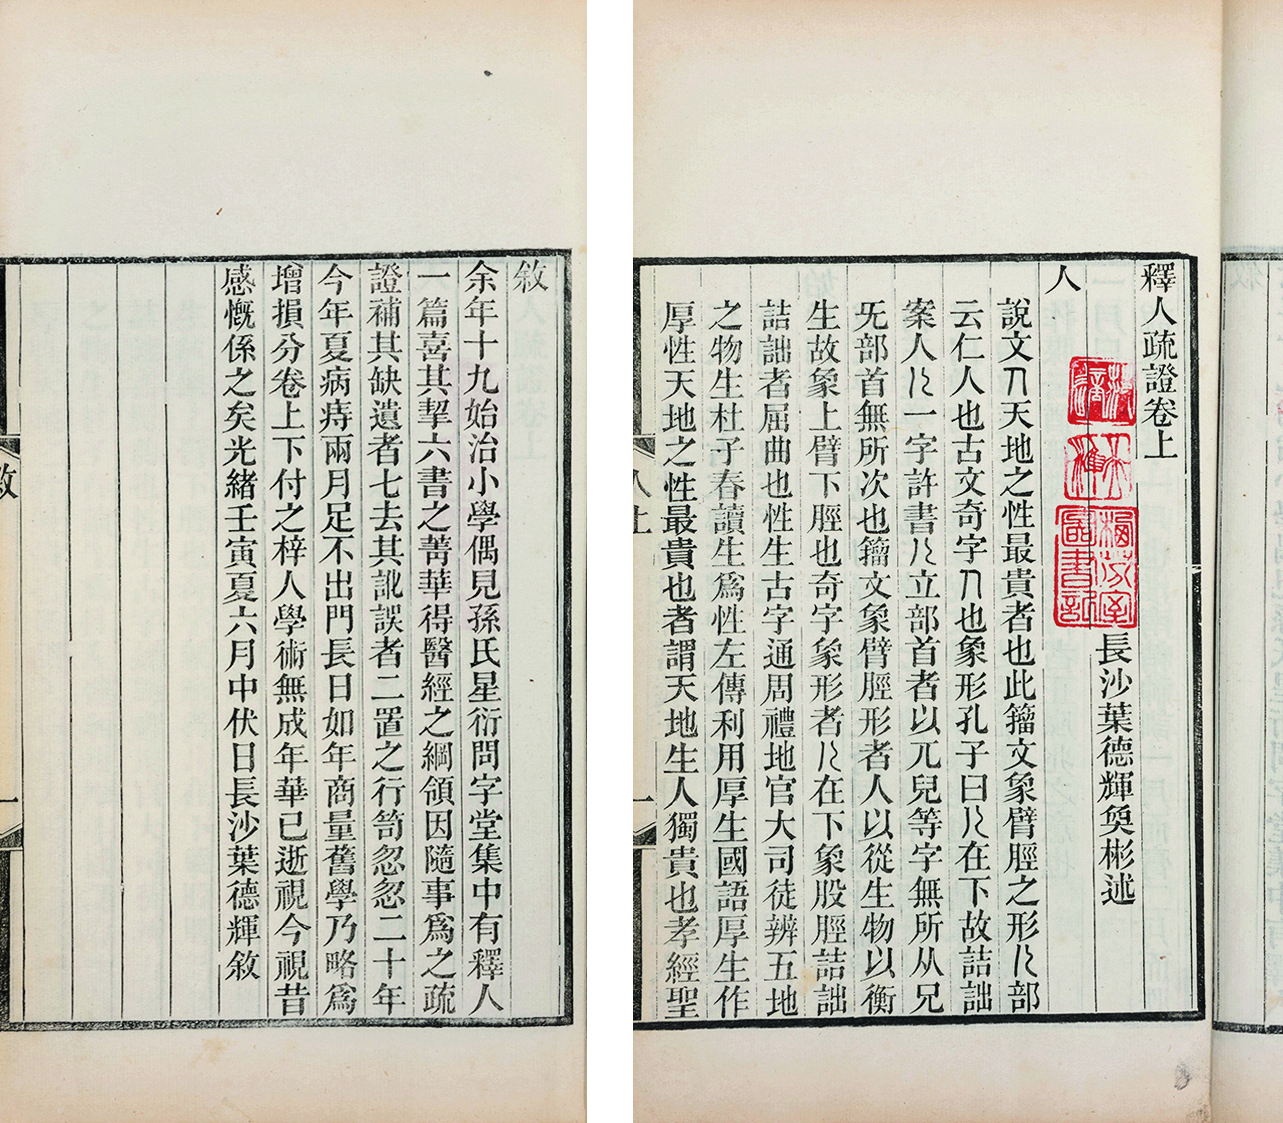 敘
余年十九始治小學偶見孫氏星衍問字堂集中有釋人
一篇喜其挈六書之菁華得醫經之綱領因隨事爲之疏
證補其缺遺者七去其訛誤者二置之行笥忽忽二十年
今年夏病痔兩月足不出門長日如年商量舊學乃略爲
增損分卷上下付之梓人學術無成年華已逝視今視昔
感慨係之矣光緒壬寅夏六月中伏日長沙葉德輝敘
敘 一
釋人疏證卷上
長沙葉德輝奐彬述
人
說文人天地之性最貴者也此籀文象臂脛之形儿部
云仁人也古文奇字人也象形孔子曰儿在下故詰詘
案人儿一字許書儿立部首者以兀兒等字無所从兄
旡部首無所次也籀文象臂脛形者人以從生物以衡
生故象上臂下脛也奇字象形者儿在下象股脛詰詘
詰詘者屈曲也性生古字通周禮地官大司徒辨五地
之物生杜子春讀生爲性左傳利用厚生國語厚生作
厚性天地之性最貴也者謂天地生人獨貴也孝經聖
人上 一